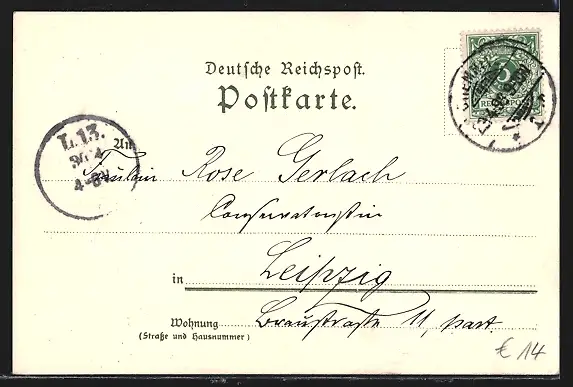 Deutsche Reichspost.
Postkarte.
5
REICHSPOST
CHEMNITZ
L.13.
30 4
4-8V
An
Fräulein Rose Gerlach
Conservatoristin
in Leipzig
Wohnung Braustrasse 11, part.
(Straße und Hausnummer)
€ 14